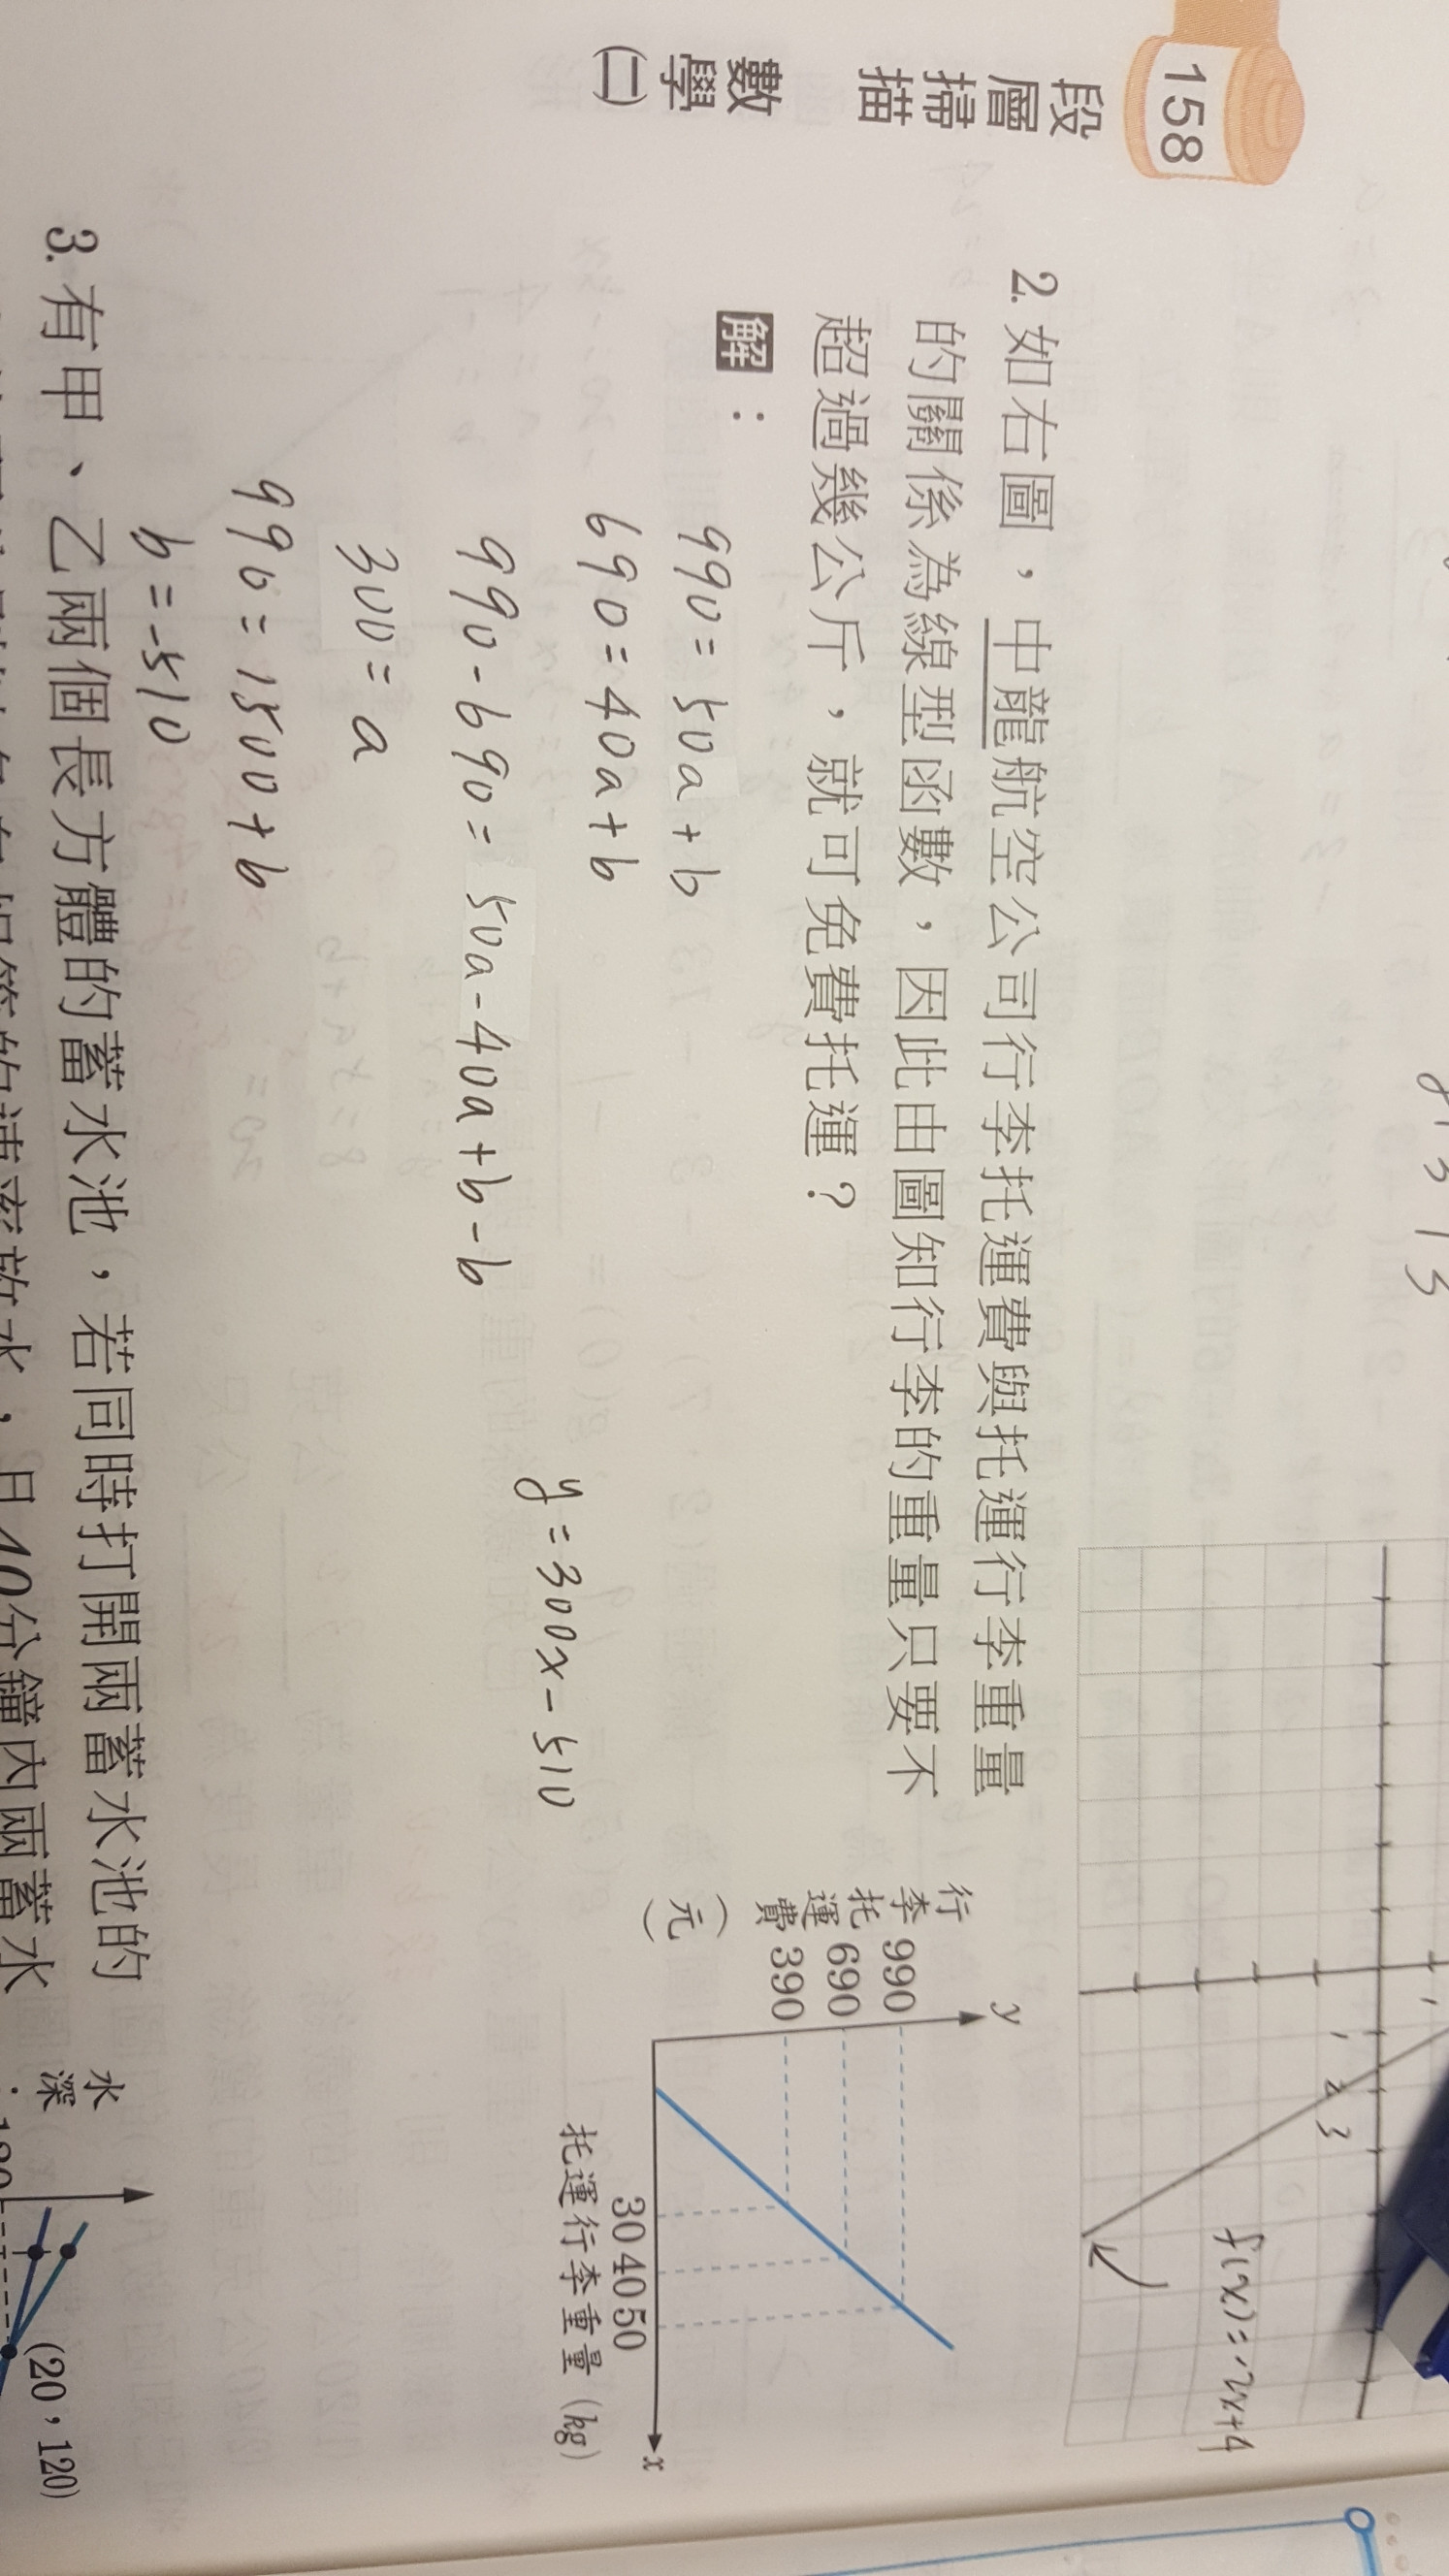 158
段層掃描
數學(二)
y=3
f(x)=-2x+4
1
1
2
3
2. 如右圖，中龍航空公司行李托運費與托運行李重量
的關係為線型函數，因此由圖知行李的重量只要不
超過幾公斤，就可免費托運？
解：
990=50a+b
690=40a+b
990-690=50a-40a+b-b
300=a
990=1500+b
b=-510
y=300x-510
y
行李托運費(元)
990
690
390
30 40 50
x
托運行李重量(kg)
3. 有甲、乙兩個長方體的蓄水池，若同時打開兩蓄水池的
水深
(20，120)